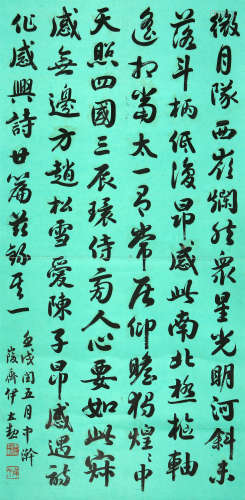 微月隊西嶺爛然眾星光明河斜未
落斗柄低復昂感此南北極樞軸
遙相當太一有常居仰瞻獨煌〻中
天照四國三辰環侍旁人心要如此寂
感無邊方趙松雪愛陳子昂感遇詩
作感興詩廿篇茲錄其一
壬戌閏五月中澣
峻齋伊立勳